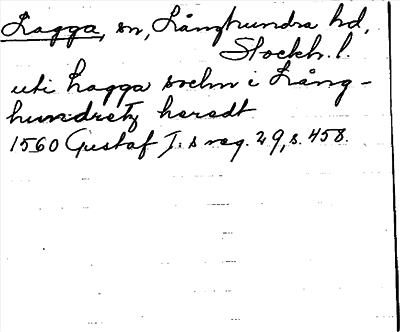 Lagga, sn, Långhundra hd,
Stockh. l.
uti Lagga sochn i Lång-
hundretz heradt
1560 Gustaf I:s reg. 29, s. 458.